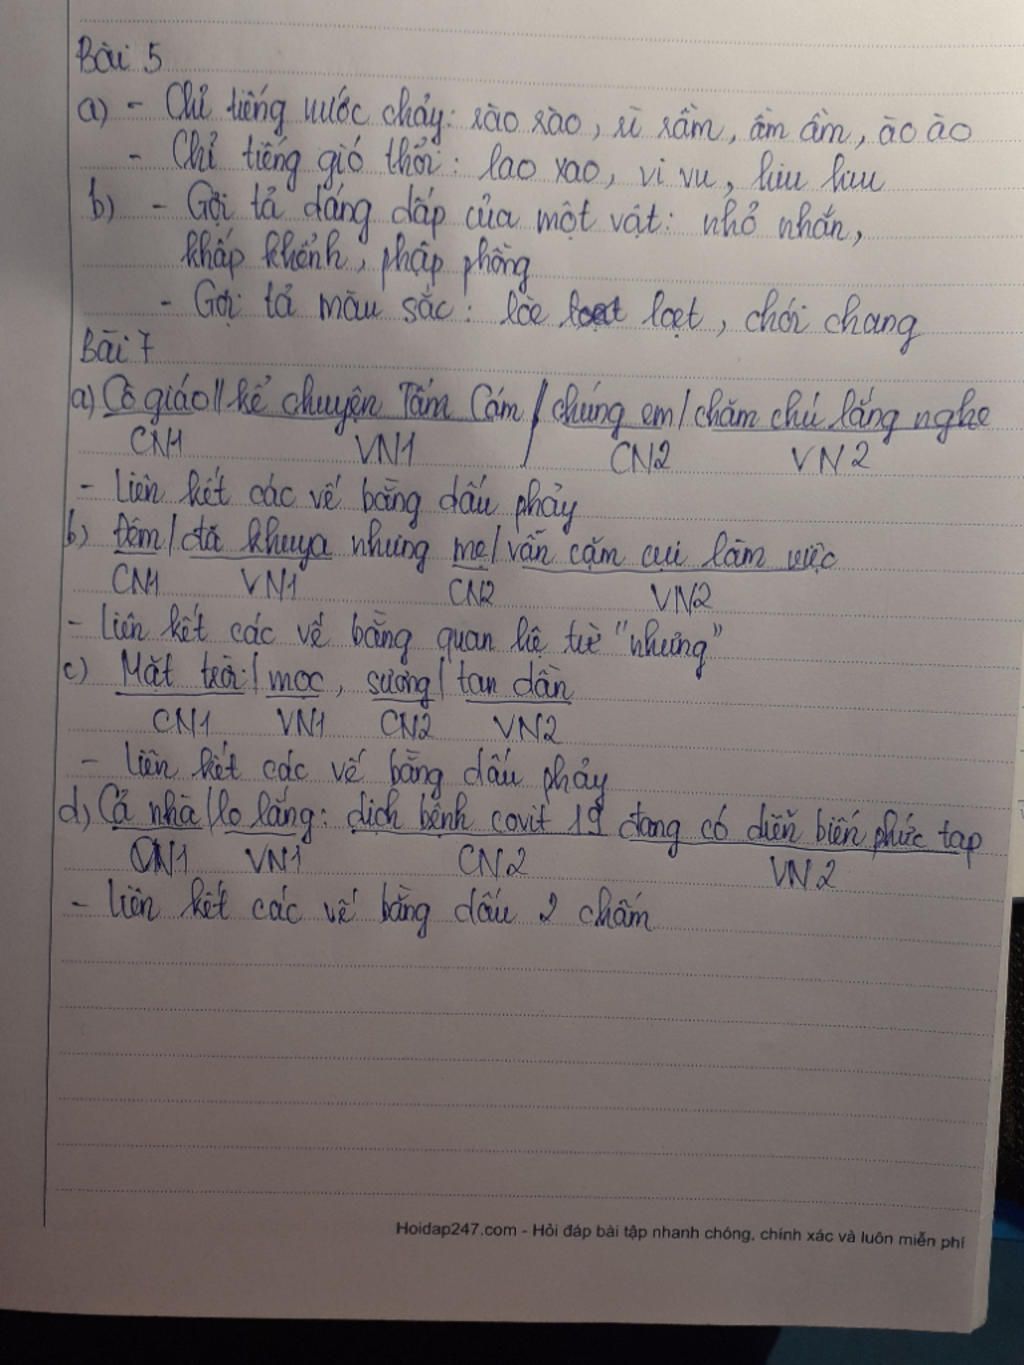 Bài 5
a) - Chỉ tiếng nước chảy: rào rào, rì rầm, ầm ầm, ào ào
- Chỉ tiếng gió thổi: lao xao, vi vu, hiu hiu
b) - Gợi tả dáng dấp của một vật: nhỏ nhắn,
khấp khểnh, phập phồng
- Gợi tả màu sắc: lòe loẹt, chói chang
Bài 7
a) Cô giáo // kể chuyện Tấm Cám / chúng em / chăm chú lắng nghe
CN1 VN1 CN2 VN2
- Liên kết các vế bằng dấu phảy
b) Đêm / đã khuya nhưng mẹ / vẫn cặm cụi làm việc
CN1 VN1 CN2 VN2
- Liên kết các vế bằng quan hệ từ "nhưng"
c) Mặt trời / mọc, sương / tan dần
CN1 VN1 CN2 VN2
- Liên kết các vế bằng dấu phảy
d) Cả nhà / lo lắng: dịch bệnh covit 19 đang có diễn biến phức tạp
CN1 VN1 CN2 VN2
- Liên kết các vế bằng dấu 2 chấm
Hoidap247.com - Hỏi đáp bài tập nhanh chóng, chính xác và luôn miễn phí